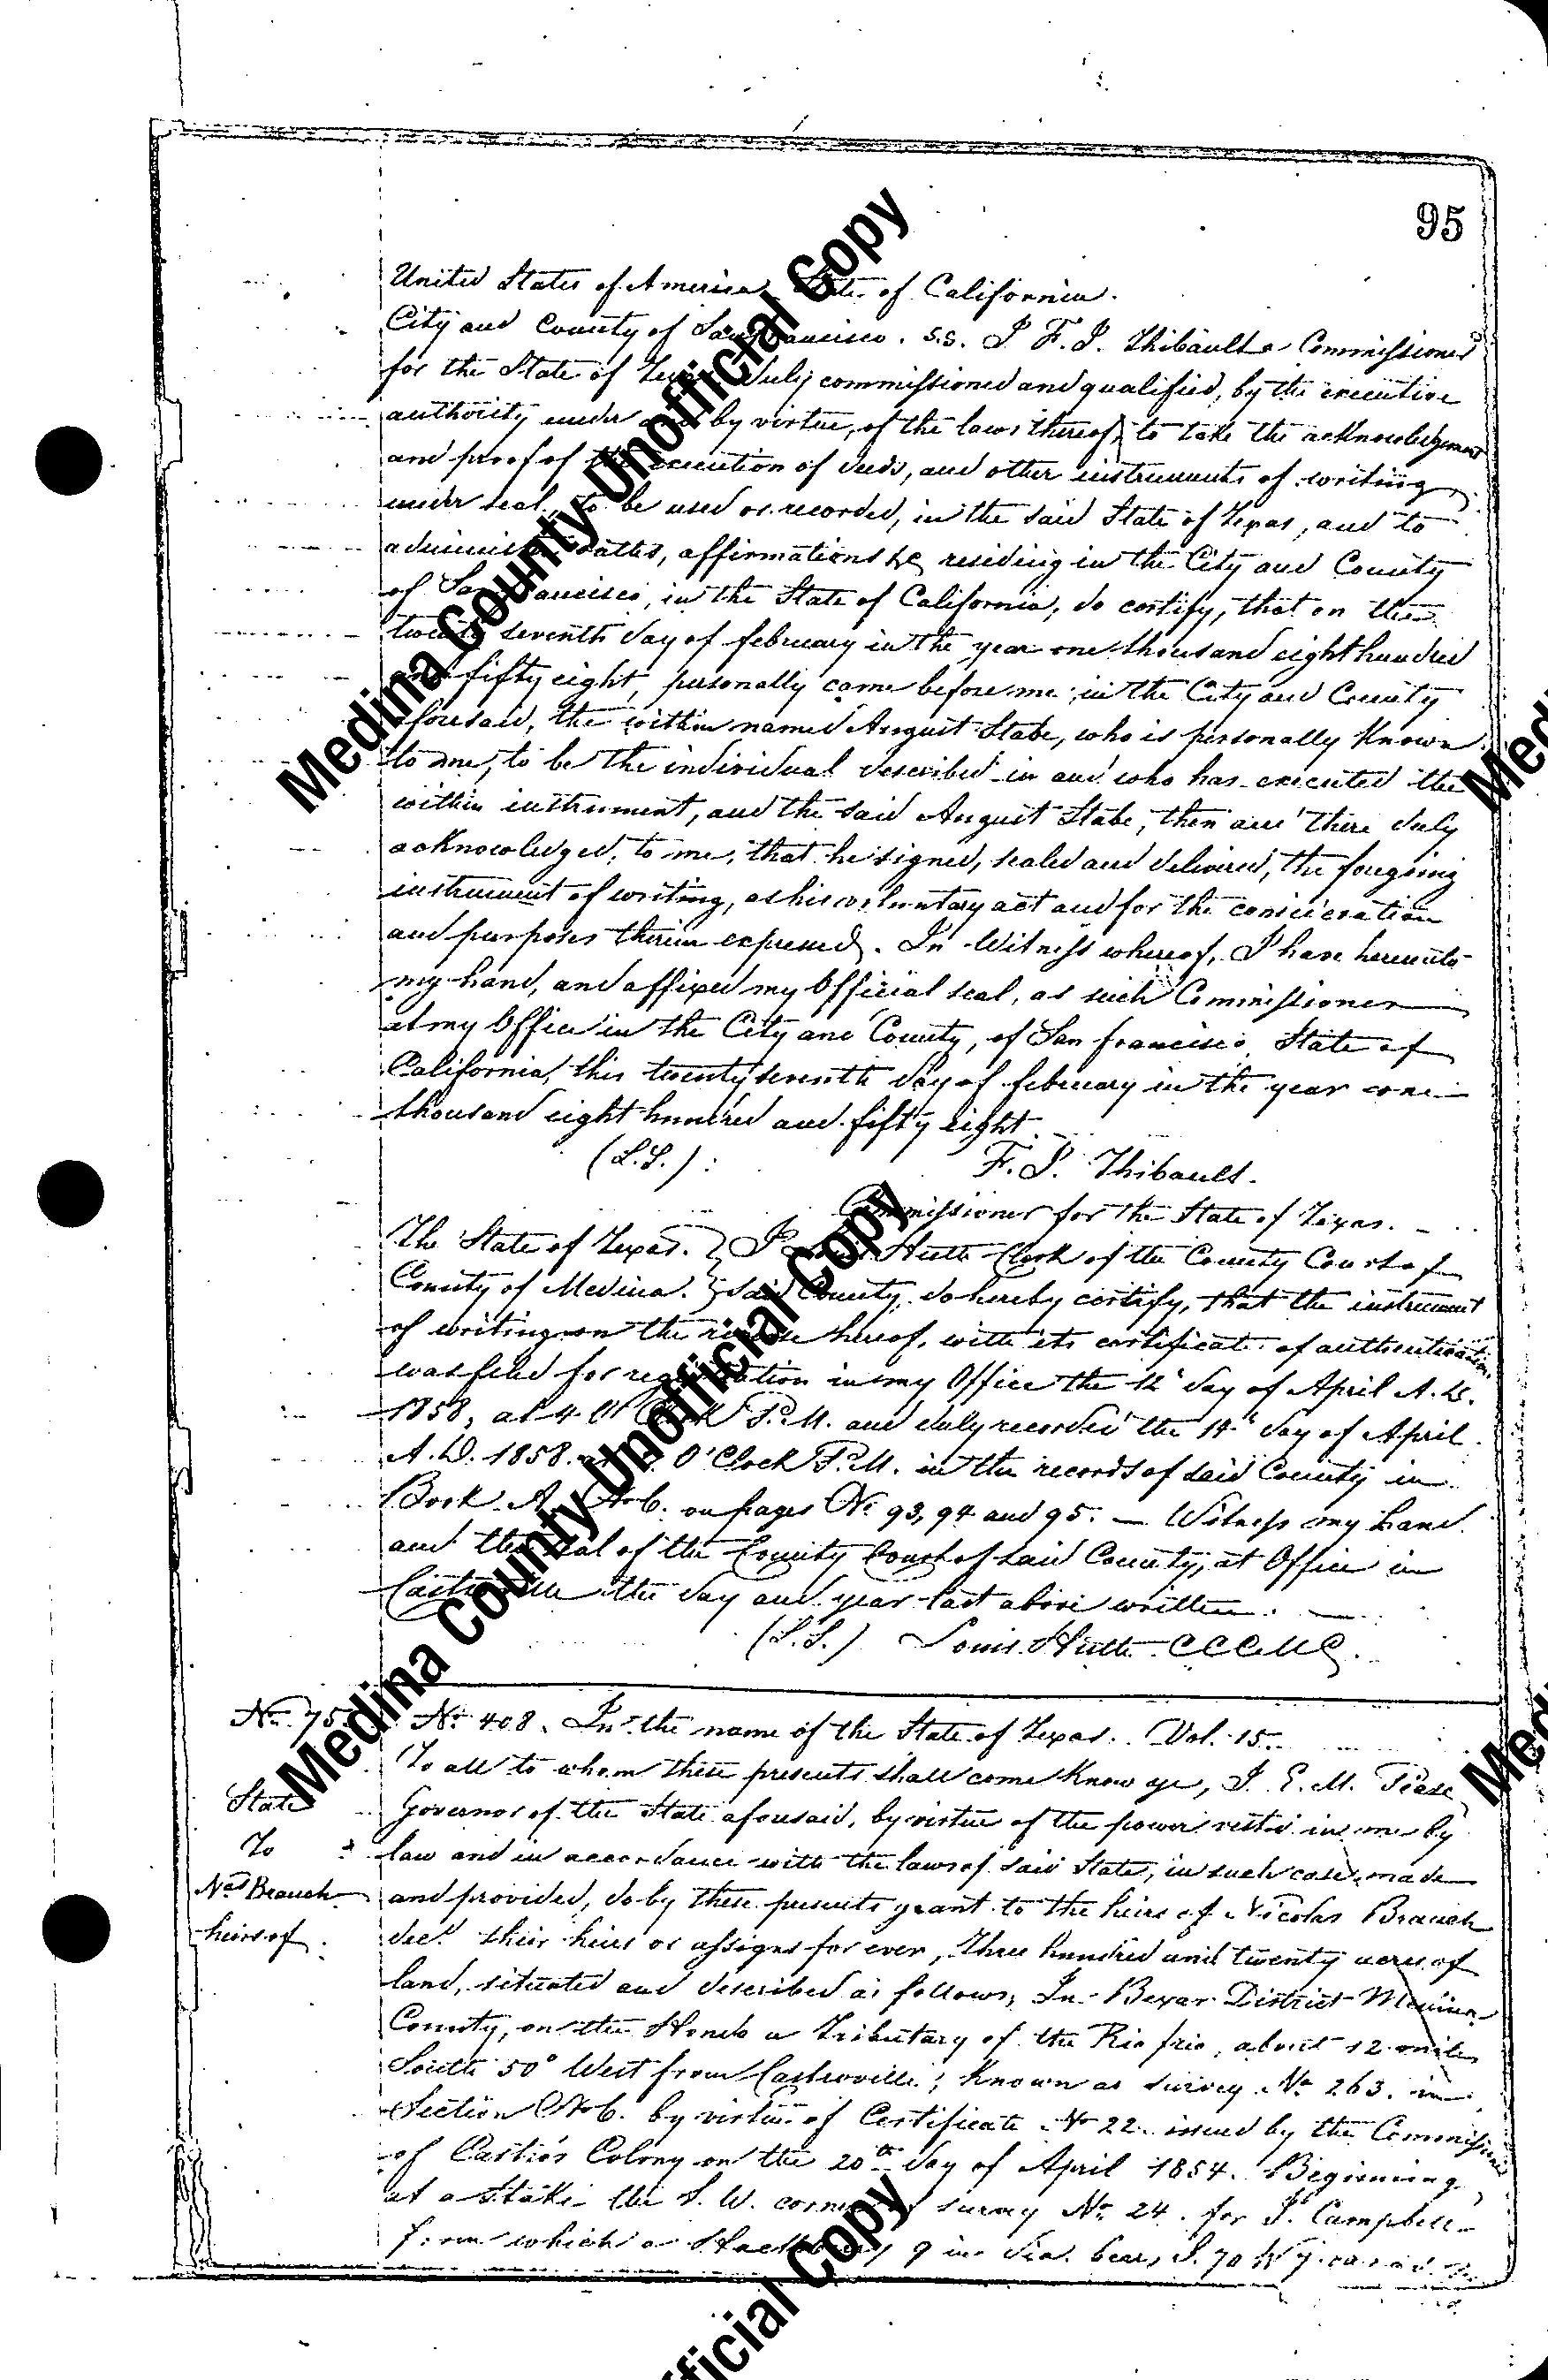 95
United States of America State of California.
City and County of San Francisco. s.s. I F. J. Thibault a Commissioner
for the State of Texas duly commissioned and qualified, by the executive
authority under and by virtue, of the laws thereof, to take the acknowledgement
and proof of the execution of deeds, and other instruments of writing
under seal, to be used or recorded, in the said State of Texas, and to
administer oaths, affirmations &c residing in the City and County
of San Francisco, in the State of California, do certify, that on the
twenty seventh day of february in the year one thousand eight hundred
and fifty eight, personally came before me in the City and County
aforesaid, the within named August Stabe, who is personally Known
to me, to be the individual described in and who has executed the
within instrument, and the said August Stabe, then and there duly
acKnowledged, to me, that he signed, sealed and delivered, the foregoing
instrument of writing, as his voluntary act and for the consideration
and purposes therein expressed. In Witness whereof, I have hereunto
my hand, and affixed my Official seal, as such Commissioner
at my Office in the City and County, of San francisco State of
California, this twenty seventh day of february in the year one
thousand eight hundred and fifty eight
(L.S.) F. J. Thibault.
Commissioner for the State of Texas.
The State of Texas. } I Huth Clerk of the County Court of
County of Medina. } said County, do hereby certify, that the instrument
of writing on the reverse hereof, with its certificate of authentication
was filed for registration in my Office the 12 day of April A.D.
1858, at 4 O'Clock P.M. and duly recorded the 14th day of April
A.D. 1858. at O'Clock P.M. in the records of said County in
Book A No 6. on pages No 93, 94 and 95. — Witness my hand
and the seal of the County Court of said County, at Office in
Castroville the day and year last above written.
(L.S.) Louis Huth CCCMC.
No. 75
State
To
Nas Brauch
heirs of
No 408. In the name of the State of Texas. Vol. 15.
To all to whom these presents shall come Know ye, I. E. M. Pease
Governor of the State aforesaid, by virtue of the power vested in me by
law and in accordance with the laws of said State, in such case made
and provided, do by these presents grant to the heirs of Nicolas Brauch
decd their heirs or assigns for ever, three hundred and twenty acres of
land, situated and described as follows, In Bexar District Medina
County, on the Hondo a Tributary of the Rio frio, about 12 miles
South 50° West from Castroville; Known as survey No 263. in
Section No 6. by virtue of Certificate No 22. issued by the Commissioner
of Castro's Colony on the 20th day of April 1854. Beginning
at a Stake the S. W. corner of survey No. 24. for J. Campbell
from which a Hackberry 9 in dia. bears S. 70 W 7
Medina County Unofficial Copy
Medina County Unofficial Copy